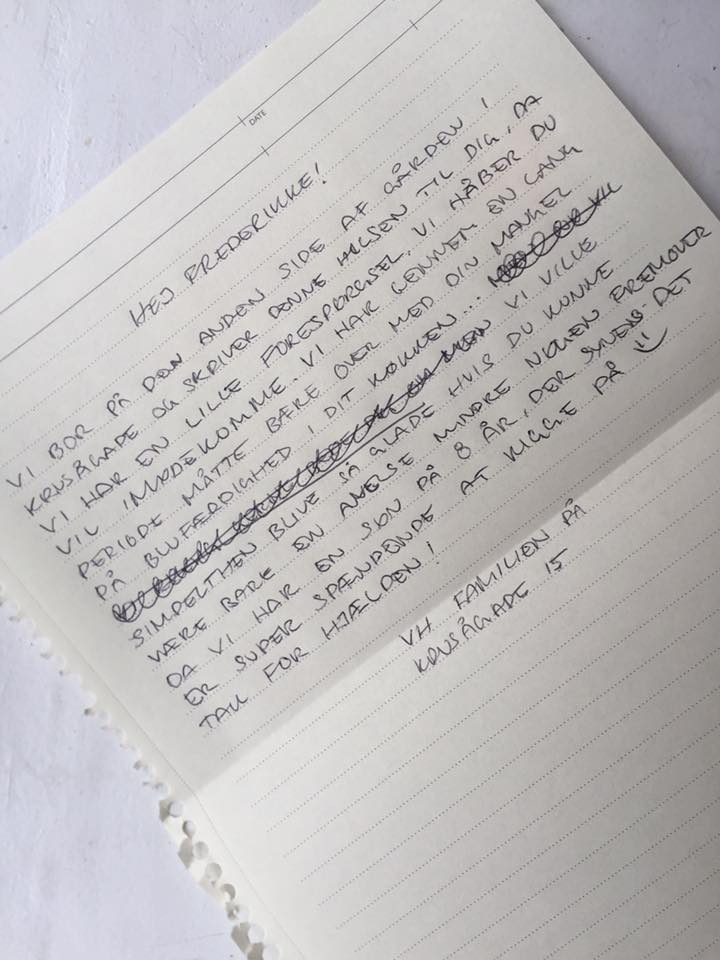 DATE
HEJ FREDERIKKE!
VI BOR PÅ DEN ANDEN SIDE AF GÅRDEN I
KRUSÅGADE OG SKRIVER DENNE HILSEN TIL DIG, DA
VI HAR EN LILLE FORESPØRGSEL VI HÅBER DU
VIL IMØDEKOMME. VI HAR GENNEM EN LANG
PERIODE MÅTTE BÆRE OVER MED DIN MANGEL
PÅ BLUFÆRDIGHED I DIT KØKKEN...
VI VILLE
SIMPELTHEN BLIVE SÅ GLADE HVIS DU KUNNE
VÆRE BARE EN ANELSE MINDRE NØGEN FREMOVER
DA VI HAR EN SØN PÅ 8 ÅR, DER SYNES DET
ER SUPER SPÆNDENDE AT KIGGE PÅ :)
TAK FOR HJÆLPEN!
VH FAMILIEN PÅ
KRUSÅGADE 15